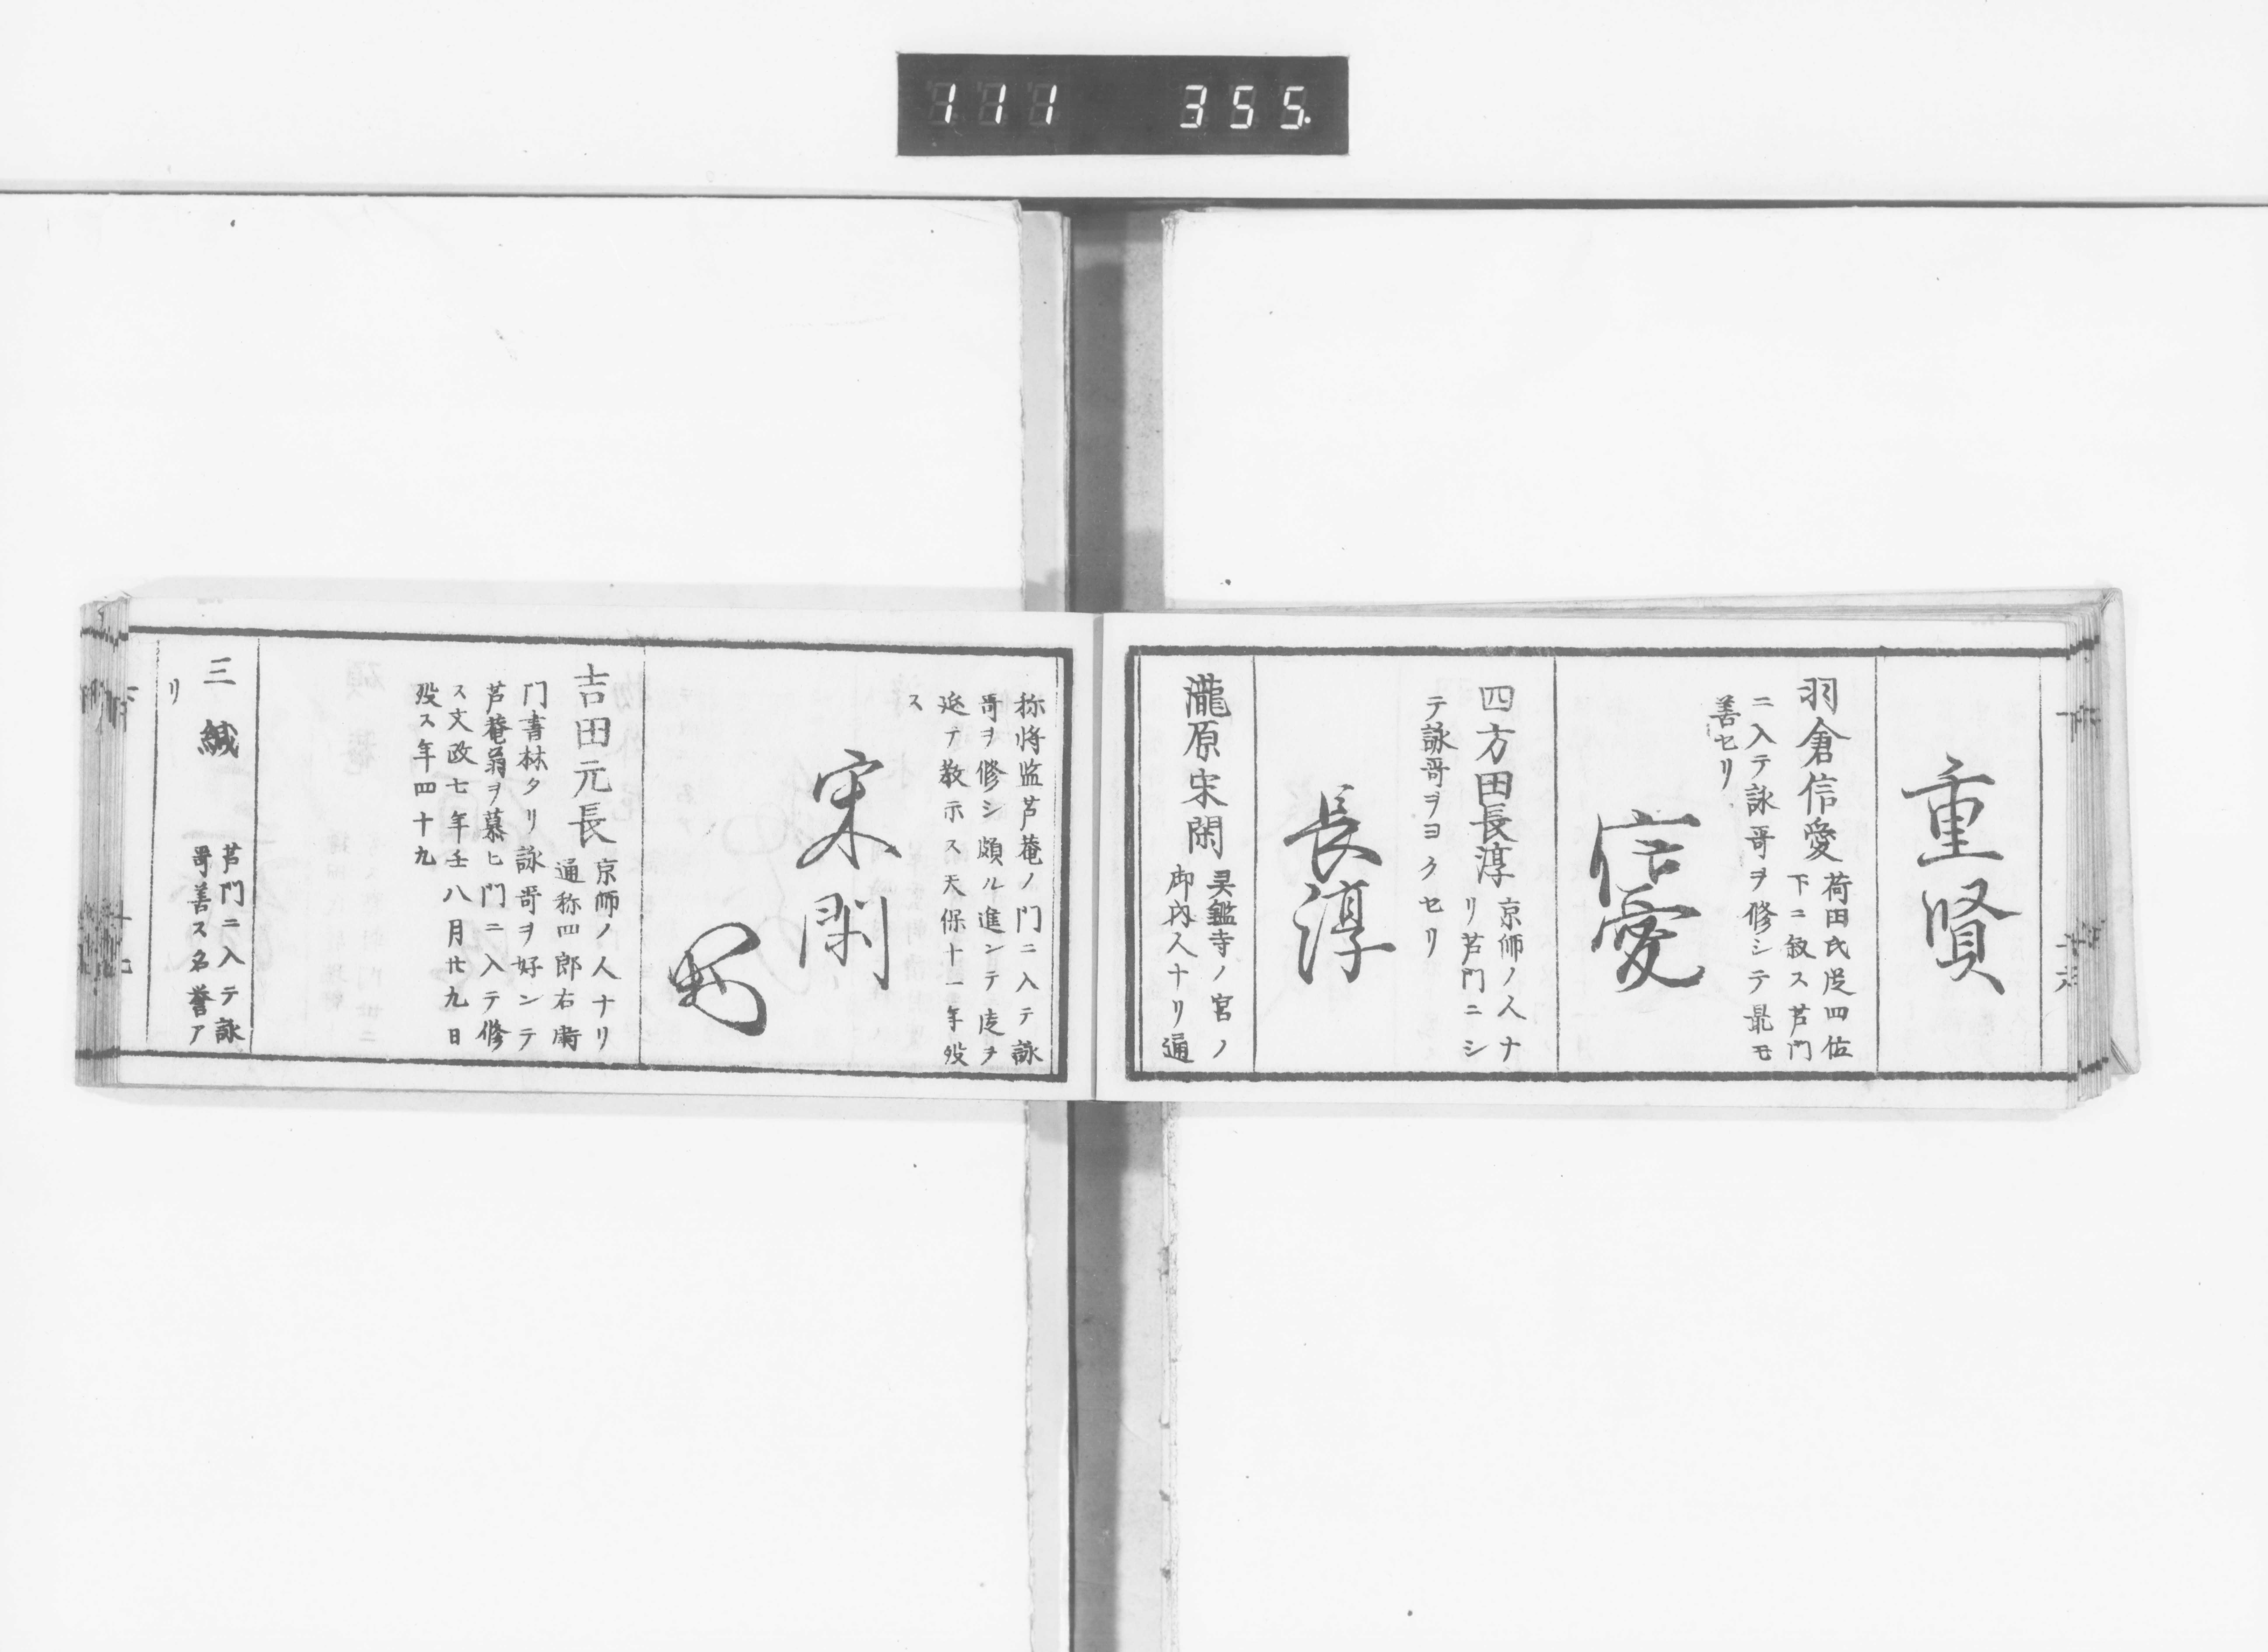 111 355.
重賢
羽倉信愛 荷田氏従四位
下ニ叙ス芦門
ニ入テ詠哥ヲ修シテ最モ
善セリ
信愛
四方田長淳 京師ノ人ナ
リ芦門ニシ
テ詠哥ヲヨクセリ
長淳
瀧原宋閑 㚑鑑寺ノ宮ノ
御内人ナリ通
称将監芦菴ノ門ニ入テ詠
哥ヲ修シ頗ル進ンテ後ヲ
延テ教示ス天保十一年歿
ス
宋閑
吉田元長 京師ノ人ナリ
通称四郎右衛
門書林タリ詠哥ヲ好ンテ
芦菴翁ヲ慕ヒ門ニ入テ修
ス文政七年壬八月廿九日
歿ス年四十九
三緘 芦門ニ入テ詠
哥善ス名誉ア
リ